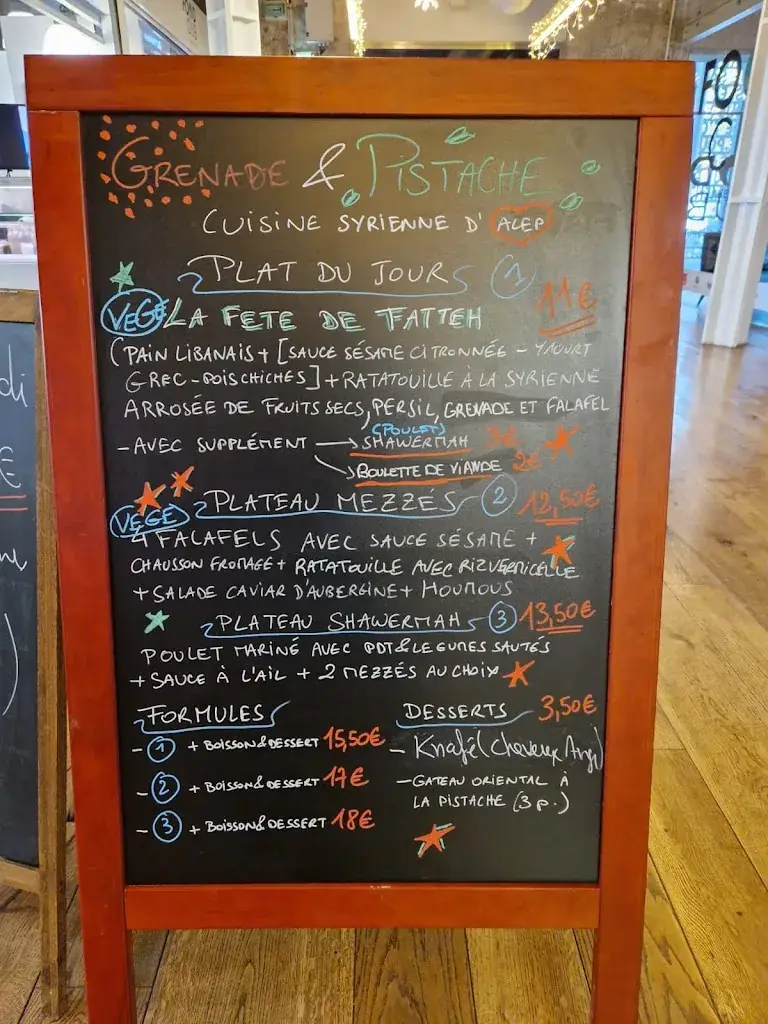 GRENADE & PISTACHE
CUISINE SYRIENNE D' ALEP
PLAT DU JOUR 1
11€
VEGE LA FETE DE FATTEH
(PAIN LIBANAIS + [SAUCE SÉSAME CITRONNÉE - YAOURT
GREC - POIS CHICHES] + RATATOUILLE À LA SYRIENNE
ARROSÉE DE FRUITS SECS, PERSIL, GRENADE ET FALAFEL
(POULET)
- AVEC SUPPLÉMENT → SHAWERMAH 3€
↘ BOULETTE DE VIANDE 2€
PLATEAU MEZZÉS 2 12,50€
VEGE
4 FALAFELS AVEC SAUCE SÉSAME +
CHAUSSON FROMAGE + RATATOUILLE AVEC RIZ VERMICELLE
+ SALADE CAVIAR D'AUBERGINE + HOUMOUS
PLATEAU SHAWERMAH 3 13,50€
POULET MARINÉ AVEC PDT & LEGUMES SAUTÉS
+ SAUCE À L'AIL + 2 MEZZÉS AU CHOIX
FORMULES
- 1 + BOISSON & DESSERT 15,50€
- 2 + BOISSON & DESSERT 17€
- 3 + BOISSON & DESSERT 18€
DESSERTS 3,50€
- Knafé (cheveux Ange)
- GATEAU ORIENTAL À
LA PISTACHE (3 p.)
di
€